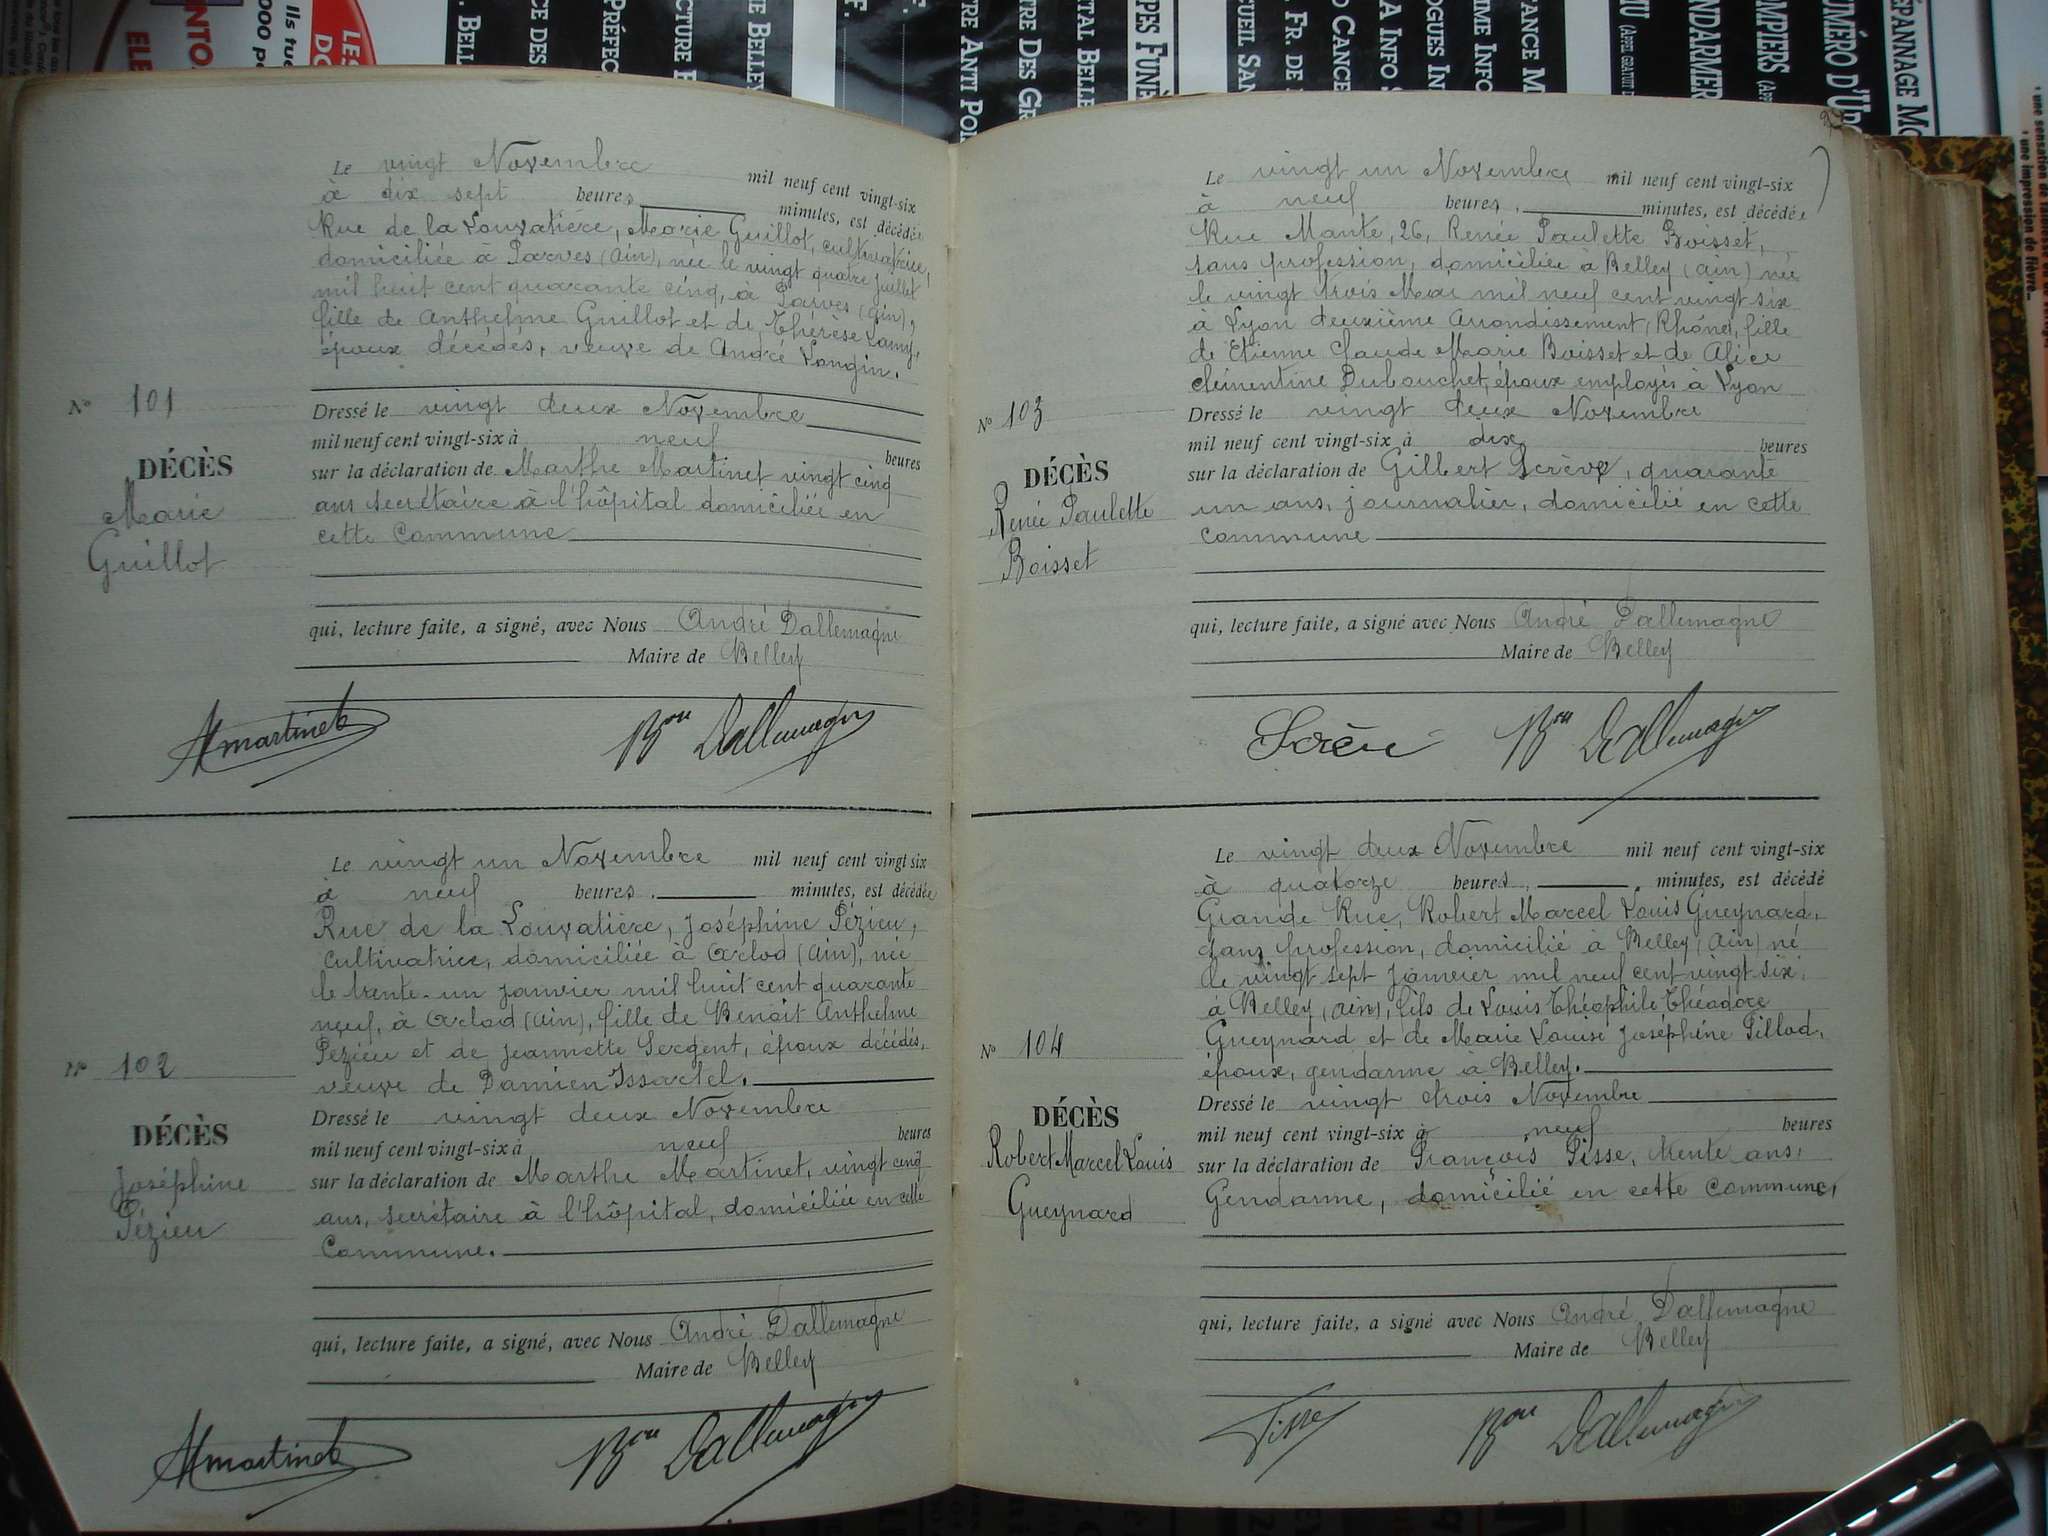 Le vingt Novembre mil neuf cent vingt-six
à dix sept heures minutes, est décédée
Rue de la Louvatière, Marie Guillot, cultivatrice,
domiciliée à Parves (Ain), née le vingt quatre juillet
mil huit cent quarante cinq, à Parves (Ain),
fille de Anthelme Guillot et de Thérèse Lamy,
époux décédés, veuve de André Longin.
N° 101
Dressé le vingt deux Novembre
mil neuf cent vingt-six à neuf heures
DÉCÈS
sur la déclaration de Marthe Martinet vingt cinq
Marie
ans secrétaire à l'hôpital domiciliée en
Guillot
cette Commune
qui, lecture faite, a signé, avec Nous André Dallemagne
Maire de Belley
Martinet Bon Dallemagne
Le vingt un Novembre mil neuf cent vingt six
à neuf heures. minutes, est décédée
Rue de la Louvatière, Joséphine Pézieu,
cultivatrice, domiciliée à Arlod (Ain), née
le trente-un janvier mil huit cent quarante
neuf, à Arlod (Ain), fille de Benoit Anthelme
Pézieu et de Jeannette Sergent, époux décédés,
N° 102
veuve de Damien Issartel.
Dressé le vingt deux Novembre
DÉCÈS
mil neuf cent vingt-six à neuf heures
Joséphine
sur la déclaration de Marthe Martinet, vingt cinq
Pézieu
ans, secrétaire à l'hôpital, domiciliée en cette
Commune.
qui, lecture faite, a signé, avec Nous André Dallemagne
Maire de Belley
Martinet Bon Dallemagne
Le vingt un Novembre mil neuf cent vingt-six
à neuf heures, minutes, est décédée
Rue Mante, 26, Renée Paulette Boisset,
sans profession, domiciliée à Belley (Ain) née
le vingt trois Mai mil neuf cent vingt six
à Lyon deuxième Arrondissement (Rhône), fille
de Etienne Claude Marie Boisset et de Alice
Clémentine Dubouchet, époux employés à Lyon
N° 103
Dressé le vingt deux Novembre
mil neuf cent vingt-six à dix heures
DÉCÈS
sur la déclaration de Gilbert Scrève, quarante
Renée Paulette
un ans, journalier, domicilié en cette
Boisset
commune
qui, lecture faite, a signé avec Nous André Dallemagne
Maire de Belley
Bon Dallemagne
Le vingt deux Novembre mil neuf cent vingt-six
à quatorze heures, minutes, est décédé
Grande Rue, Robert Marcel Louis Gueynard,
sans profession, domicilié à Belley (Ain) né
le vingt sept janvier mil neuf cent vingt six,
à Belley (Ain), fils de Louis Théophile Théodore
Gueynard et de Marie Louise Joséphine Pillod,
N° 104
époux, gendarme à Belley.
Dressé le vingt trois Novembre
DÉCÈS
mil neuf cent vingt-six à neuf heures
Robert Marcel Louis
sur la déclaration de François Pisse, trente ans,
Gueynard
Gendarme, domicilié en cette commune,
qui, lecture faite, a signé avec Nous André Dallemagne
Maire de Belley
Pisse Bon Dallemagne